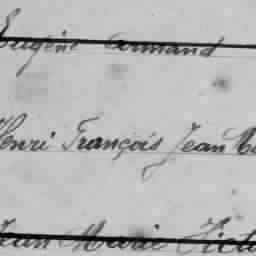 Eugène Armand
Henri François Jean Ma
Jean Marie Victo